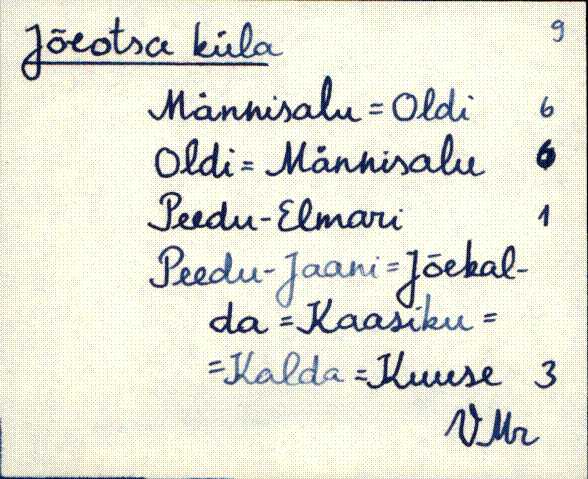 Jõeotsa küla 9
Männisalu = Oldi 6
Oldi = Männisalu 6
Peedu-Elmari 1
Peedu-Jaani = Jõekal-
da = Kaasiku =
= Kalda = Kuuse 3
VMr